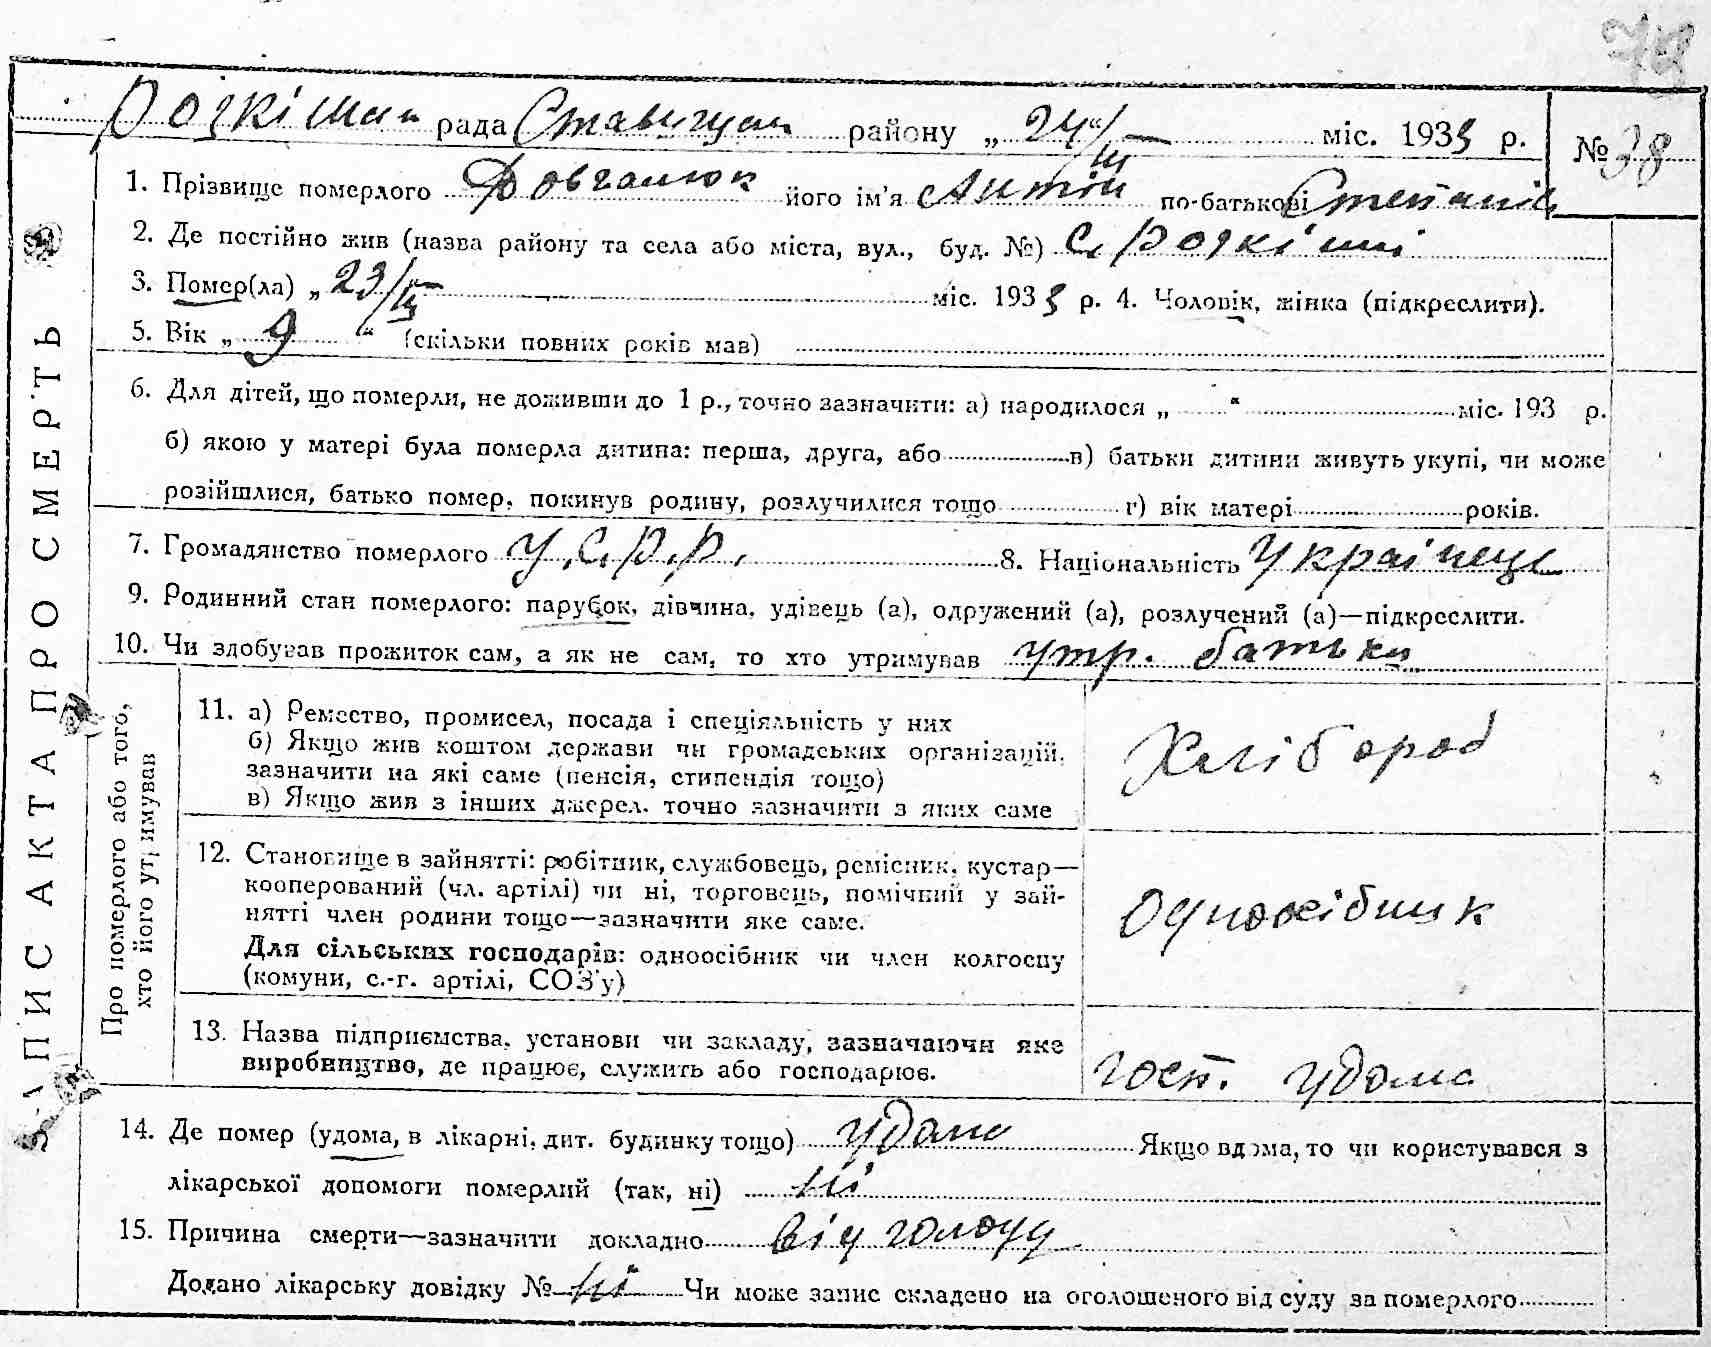 Розкішан рада Ставищан району „24“/III міс. 1933 р. № 38
1. Прізвище померлого Довгалюк його ім’я Антін по-батькові Степанів
2. Де постійно жив (назва району та села або міста, вул., буд. №) С. Розкішні
3. Помер(ла) „23/III міс. 1933 р. 4. Чоловік, жінка (підкреслити).
5. Вік „ 9 “ (скільки повних років мав)
6. Для дітей, що померли, не доживши до 1 р., точно зазначити: а) народилося „ “ міс. 193 р.
б) якою у матері була померла дитина: перша, друга, або в) батьки дитини живуть укупі, чи може
розійшлися, батько помер, покинув родину, розлучилися тощо г) вік матері років.
7. Громадянство померлого У.С.Р.Р. 8. Національність Українець
9. Родинний стан померлого: парубок, дівчина, удівець (а), одружений (а), розлучений (а)—підкреслити.
10. Чи здобував прожиток сам, а як не сам, то хто утримував утр. батьки
11. а) Ремество, промисел, посада і спеціяльність у них
б) Якщо жив коштом держави чи громадських організацій,
зазначити на які саме (пенсія, стипендія тощо)
в) Якщо жив з інших джерел, точно зазначити з яких саме
Хлібороб
12. Становище в зайнятті: робітник, службовець, ремісник, кустар—
кооперований (чл. артілі) чи ні, торговець, помічний у зай-
нятті член родини тощо—зазначити яке саме.
Для сільських господарів: одноосібник чи член колгоспу
(комуни, с.-г. артілі, СОЗ’у)
Одноосібник
13. Назва підприємства, установи чи закладу, зазначаючи яке
виробництво, де працює, служить або господарює.
госп. удома
14. Де помер (удома, в лікарні, дит. будинку тощо) удома Якщо вдома, то чи користувався з
лікарської допомоги померлий (так, ні) ні
15. Причина смерти—зазначити докладно від голоду
Додано лікарську довідку № ні Чи може запис складено на оголошеного від суду за померлого
ЗАПИС АКТА ПРО СМЕРТЬ
Про померлого або того,
хто його утримував